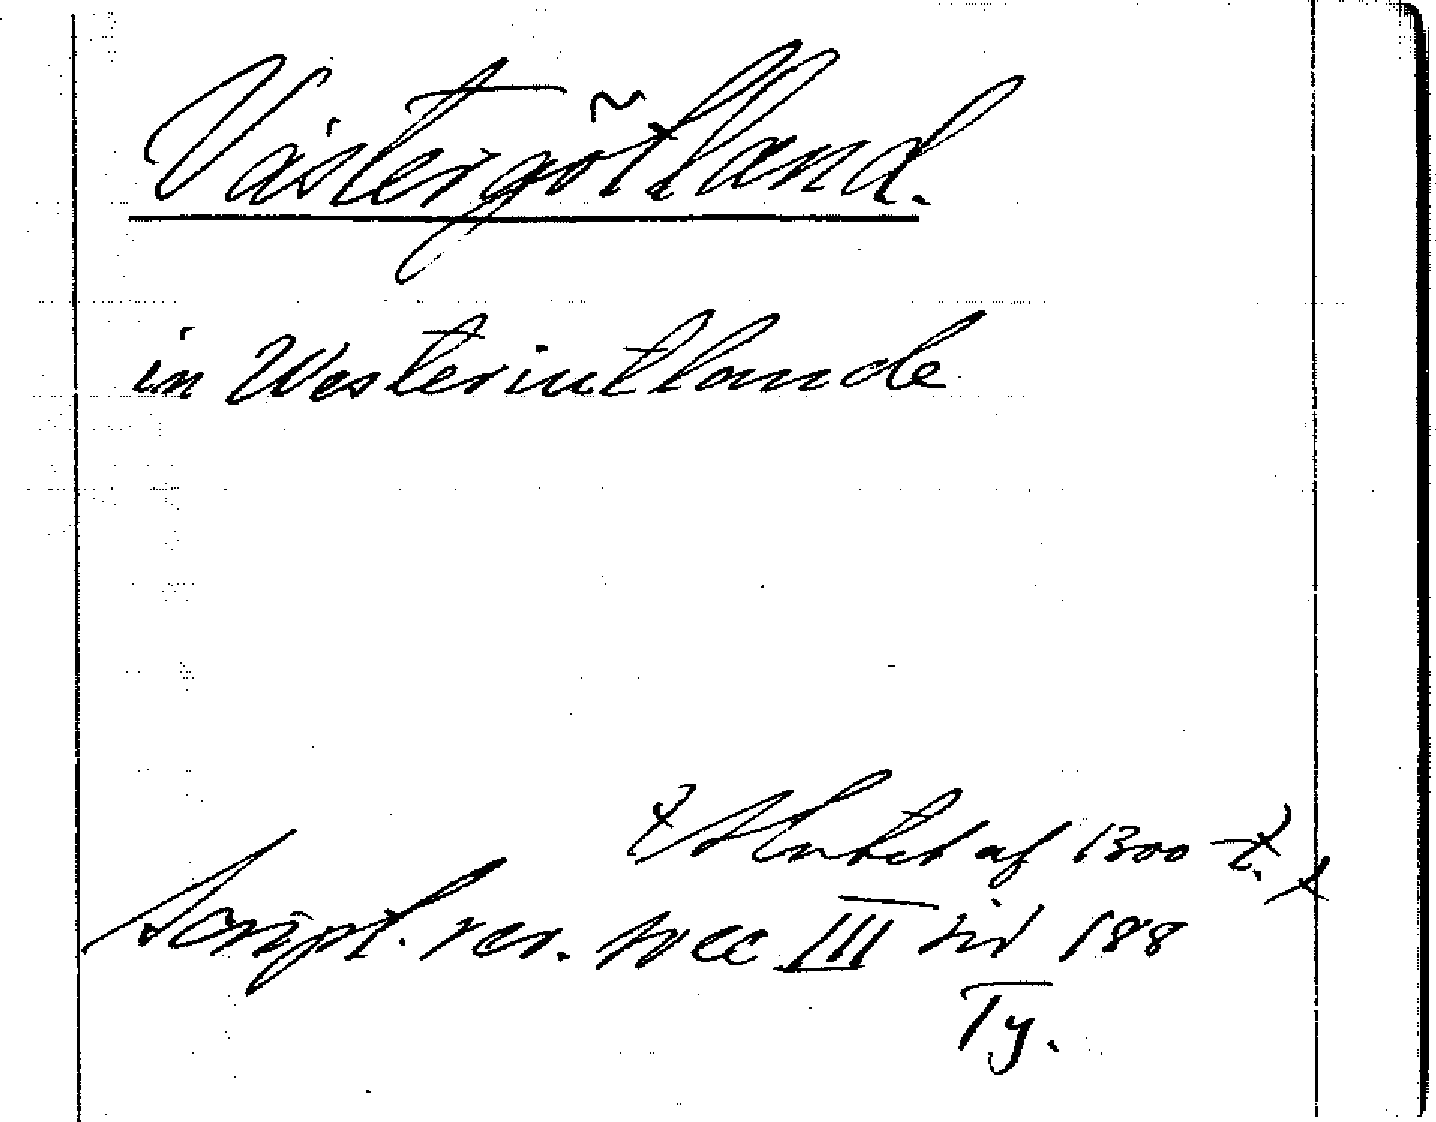 Västergötland.
in Westeriutlande
(Slutet af 1300-t.)
Script. rer. svec III sid 188
Ty.